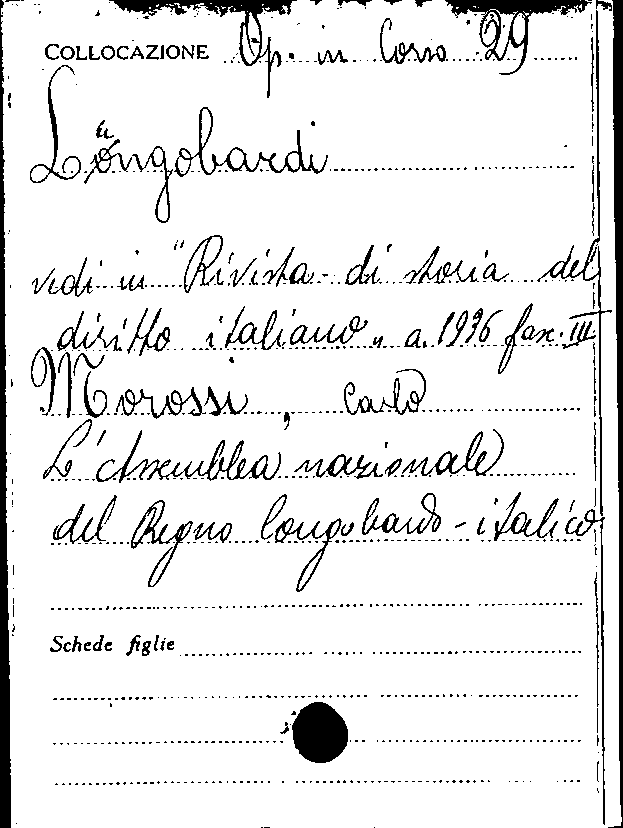 COLLOCAZIONE Op. in Corso 29
Longobardi
vedi in "Rivista di storia del
diritto italiano„ a. 1936 fasc. III
Morossi, Carlo
L'Assemblea nazionale
del Regno longobardo-italico
Schede figlie